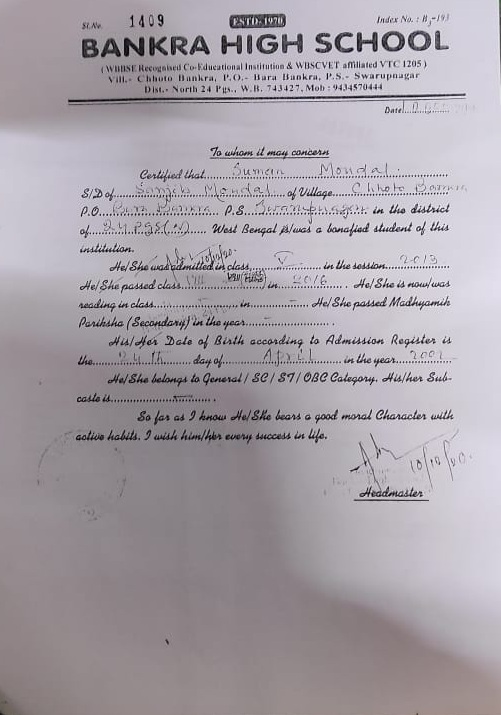 Sl.No. 1409 ESTD-1970 Index No. : B3-193
BANKRA HIGH SCHOOL
( WBBSE Recognised Co-Educational Institution & WBSCVET affiliated VTC 1205 )
Vill.- Chhoto Bankra, P.O.- Bara Bankra, P.S.- Swarupnagar
Dist.- North 24 Pgs., W.B. 743427, Mob : 9434570444
Date
To whom it may concern
Certified that Suman Mondal
S/D of Sanjib Mondal of Village Chhoto Bankra
P.O. Bara Bankra P.S. Swarupnagar in the district
of 24 Pgs(N) West Bengal is/was a bonafied student of this
institution.
10/12/20
He/She was admitted in class V in the session 2013
He/She passed class VIII in 2016 He/She is now/was
reading in class - in - He/She passed Madhyamik
Pariksha (Secondary) in the year -
His/Her Date of Birth according to Admission Register is
the 24th day of April in the year 2002
He/She belongs to General / SC / ST / OBC Category. His/her Sub-
caste is
So far as I know He/She bears a good moral Character with
active habits. I wish him/her every success in life.
10/12/20
Headmaster